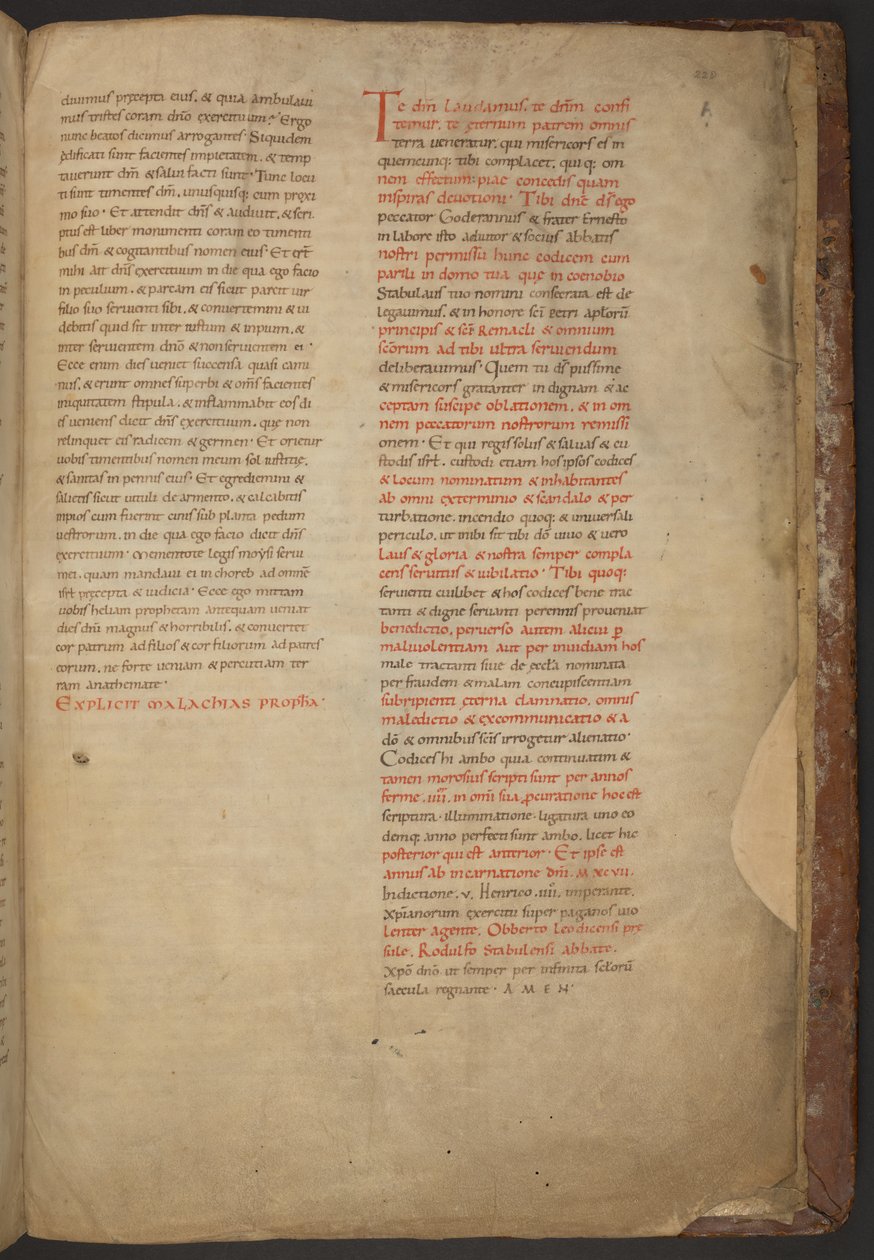 diuimus pręcepta eius. & quia ambulaui
mus tristes coram dn̄o exercituum; Ergo
nunc beatos dicimus arrogantes. Siquidem
ędificati sunt facientes impietatem. & temp
tauerunt dm̄. & salui facti sunt. Tunc locu
ti sunt timentes dm̄. unusquisq; cum proxi
mo suo. Et attendit dn̄s & audiuit. & scri
ptus est liber monumenti coram eo timenti
bus dm̄ & cogitantibus nomen eius. Et er̄t
mihi ait dn̄s exercituum in die qua ego facio
in peculium. & parcam eis sicut parcit uir
filio suo seruienti sibi. & conuertemini & ui
debitis quid sit inter iustum & inpium. &
inter seruientem dn̄o & non seruientem ei.
Ecce enim dies ueniet succensa quasi cami
nus. & erunt omnes superbi & om̄s facientes
iniquitatem stipula. & inflammabit eos di
es ueniens dicit dn̄s exercituum. que non
relinquet eis radicem & germen. Et orietur
uobis timentibus nomen meum sol iustitię.
& sanitas in pennis eius. Et egrediemini &
salietis sicut uituli de armento. & calcabitis
impios cum fuerint cinis sub planta pedum
uestrorum. in die qua ego facio dicit dn̄s
exercituum. Mementote legis moysi serui
mei. quam mandaui ei in choreb ad omnē
isrl̄ pręcepta & iudicia. Ecce ego mittam
uobis heliam prophetam antequam ueniat
dies dn̄i magnus & horribilis. & conuertet
cor patrum ad filios & cor filiorum ad patres
eorum. ne forte ueniam & percutiam ter
ram anathemate.
EXPLICIT MALACHIAS PROPh̄A.
220
Te dm̄ laudamus. te dn̄m confi
temur. te ęternum patrem omnis
terra ueneratur. qui misericors es in
quemcunq; tibi complacet. qui q; om
nem effectum piae concedis quam
inspiras deuotioni. Tibi dn̄e ds̄ ego
peccator Goderannus & frater Ernesto
in labore isto adiutor & socius abbatis
nostri permissu hunc codicem cum
parili in domo tua quę in coenobio
Stabulaus tuo nomini consecrata est de
legauimus. & in honore sc̄i petri apl̄orū
principis & sc̄i Remacli & omnium
sc̄orum ad tibi ultra seruiendum
deliberauimus. Quem tu ds̄ piissime
& misericors gratanter in dignam & ac
ceptam suscipe oblationem. & in om
nem peccatorum nostrorum remissi
onem. Et qui regis solus & saluas & cu
stodis isrl̄. custodi etiam hos ipsos codices
& locum nominatum & inhabitantes
ab omni exterminio & scandalo & per
turbatione. incendio quoq; & uniuersali
periculo. ut inibi sit tibi dō uiuo & uero
laus & gloria & nostra semper compla
cens seruitus & iubilatio. Tibi quoq;
seruienti cuilibet & hos codices bene trac
tanti & digne seruanti perennis proueniat
benedictio. peruerso autem alicui p̱
maliuolentiam aut per inuidiam hos
male tractanti siue de ęccl̄a nominata
per fraudem & malam concupiscentiam
subripienti ęterna damnatio. omnis
maledictio & excommunicatio & a
dō & omnibus sc̄is irrogetur alienatio.
Codices hi ambo quia continuatim &
tamen morosius scripti sunt per annos
ferme .IIII. in om̄i sua ꝓcuratione hoc est
scriptura. illuminatione. ligatura uno eo
demq; anno perfecti sunt ambo. licet hic
posterior qui est anterior. Et ipse est
annus ab incarnatione dn̄i. M XC VII.
Indictione .v. Henrico .IIII. imperante.
Xp̄ianorum exercitu super paganos uio
lenter agente. Obberto leodicensi prę
sule. Rodulfo Stabulensi abbate.
Xpō dn̄o ut semper per infinita sc̄lorū
saecula regnante. AMEN.